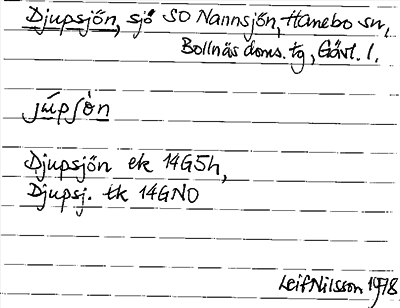 Djupsjön, sjö SO Nannsjön, Hanebo sn,
Bollnäs doms. tg, Gävl. l.
jʉ́pʃö̀n
Djupsjön ek 14G5h,
Djupsj. tk 14GNO
Leif Nilsson 1978